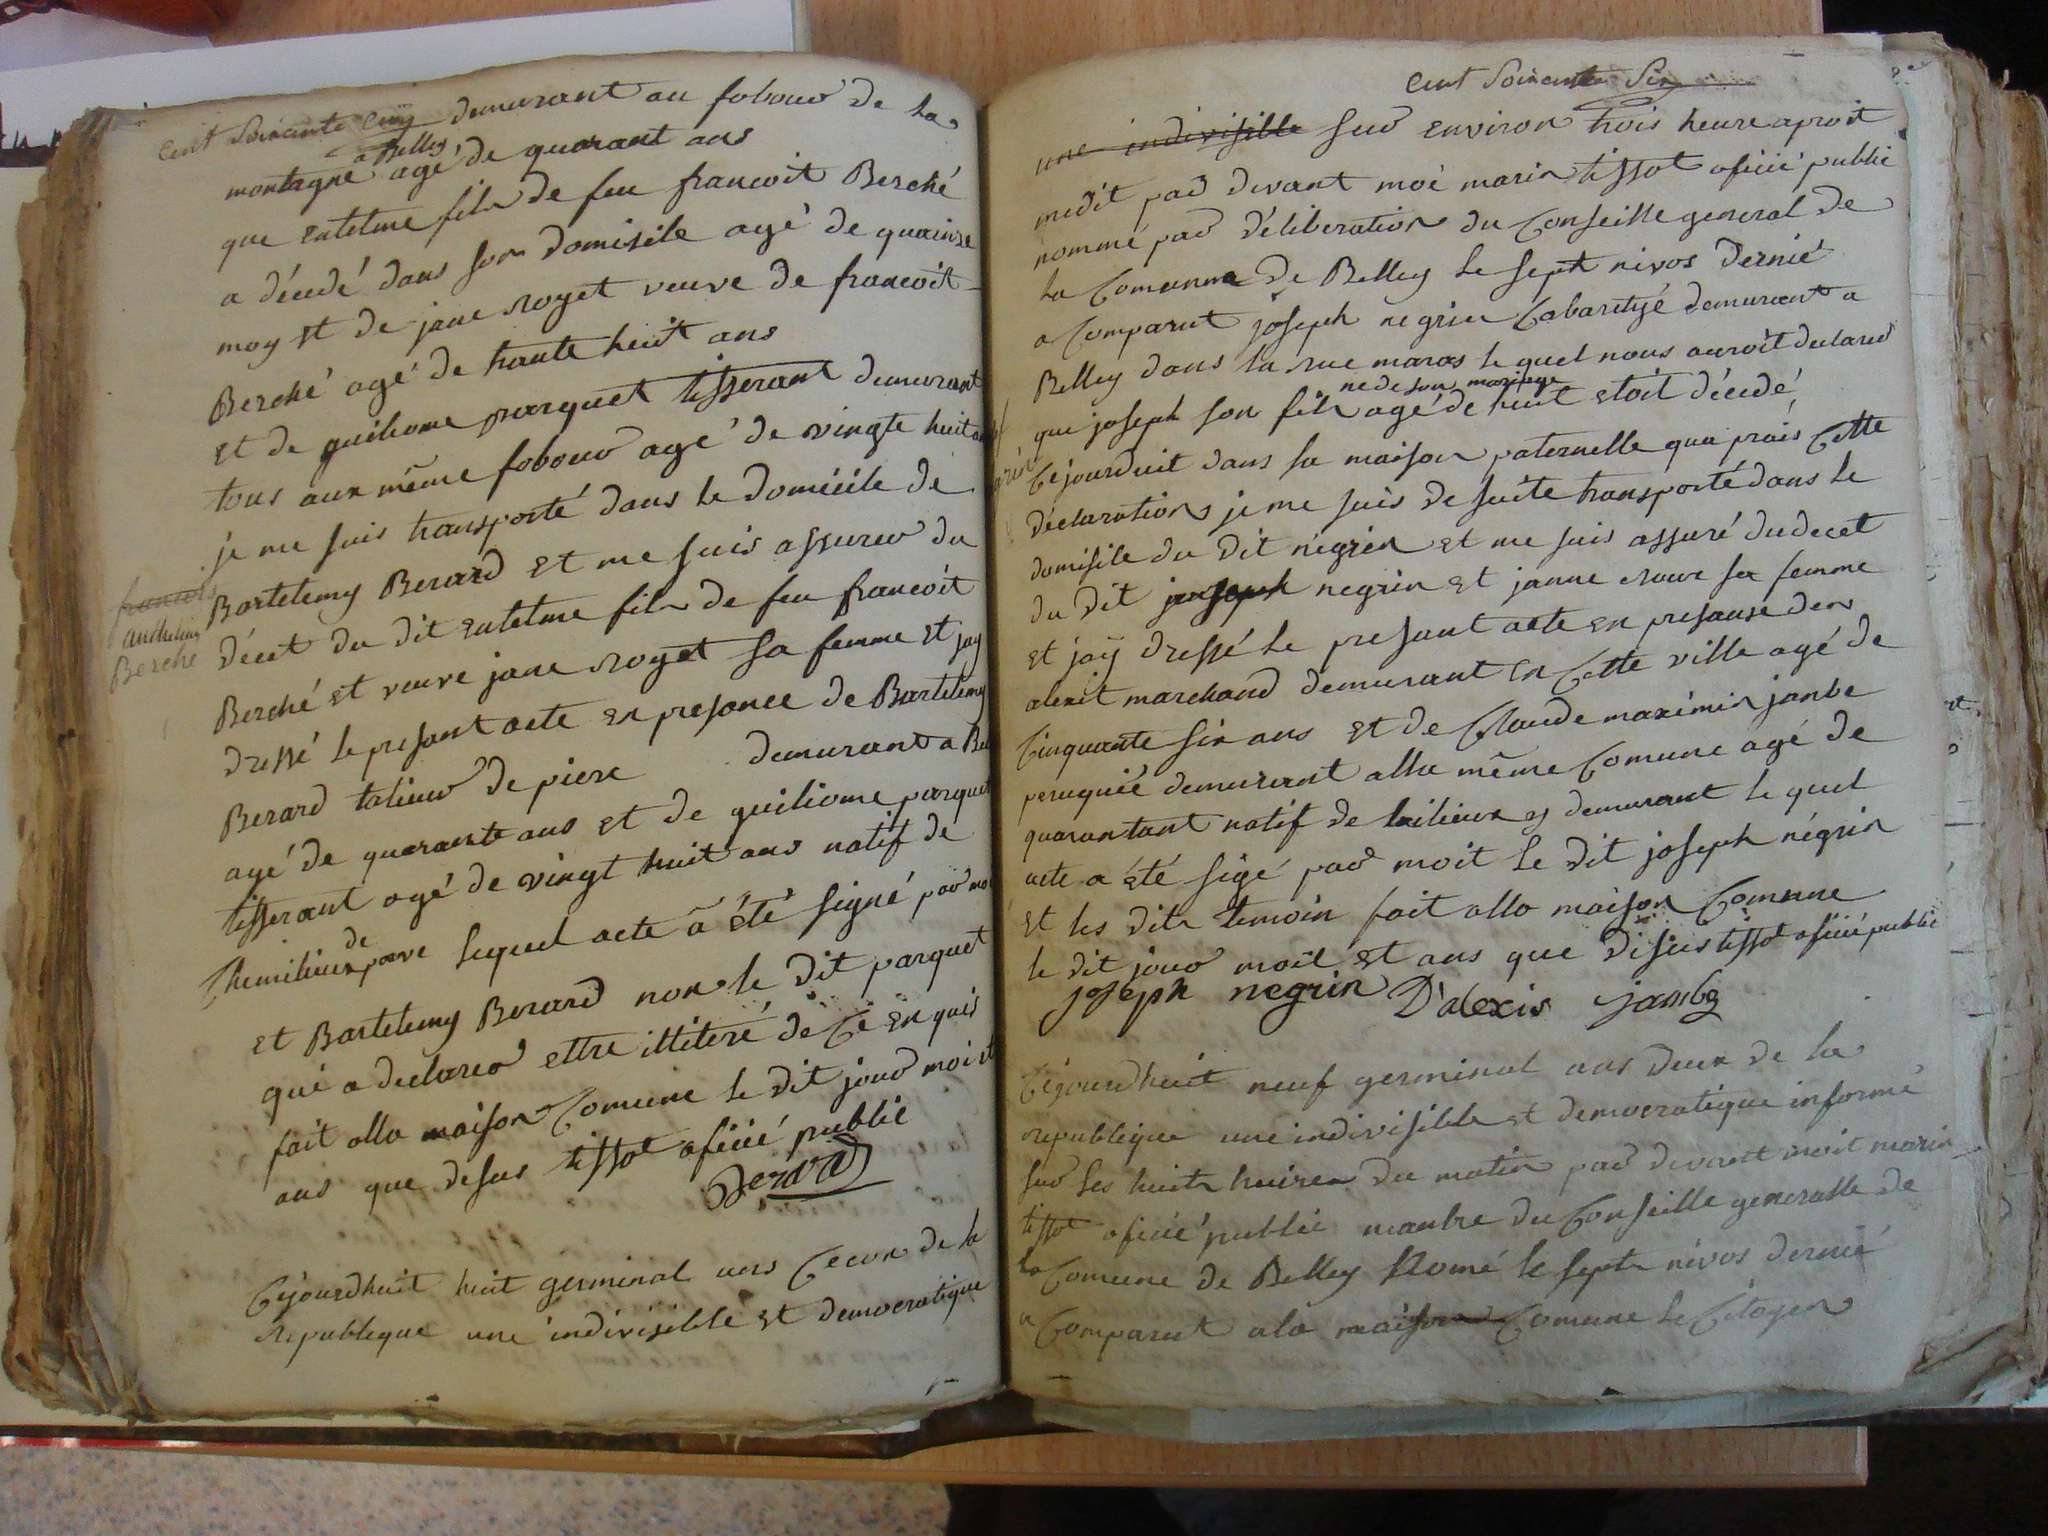 Cent Soixante Cinq demurant au fobour de la
a Belley
montagne agé de quarant ans
que entelme fils de feu francoit Berché
a décedé dans son domisile agé de quainze
moy et de jane royet veuve de francoit
Berché agé de trante huit ans
et de guiliome parquet tisserant demurant
tous aux même fobour agé de vingte huit an
je me suis transporté dans le domicile de
Bartelemy Berard et me suis assurer du
décet du dit entelme fils de feu francoit
francois
anthelme
Berche
Berché et veuve jane royet sa femme et jay
dressé le presant acte en presance de Bartelemy
Berard talieur de piere demurant a Bel
agé de quarante ans et de guiliome parquet
tisserant agé de vingt huit ans natif de
de
Chemilieux parve lequel acte a été signé par moi
et Bartelemy Berard non le dit parquet
qui a declarer ettre illiteré de ce enquis
fait alla maison Comune le dit jour moi et
ans que desus tissot oficié public
Berard
Cejourdhuit huit germinal ans Cecon de la
republeque une indivisible et democratique
Cent Soixante Six
une indivisible sur environ trois heure aproit
medit par devant moé marin tissot oficié public
nommé par déliberation du Conseille general de
la Comunne de Belley le sept nivos dernié
a Comparut joseph negrin Cabaritié demurant a
Belley dans la rue maras le quel nous auroit declarer
ne de son mariage
que joseph son fils agé de huit etoit décedé
Cejourduit dans sa maison paternelle qua prais Cette
déclaration je me suis de suite transporté dans le
domisile du dit négrin et me suis assuré du decet
du dit joseph negrin et janne rouve sa femme
et jaÿ dressé le presant acte en presanse de
alexit marchand demurant en Cette ville agé de
Cinquante six ans et de Claude maximin janbe
peruquié demurant alla même Comune agé de
quarantant natif de lailieux y demurant le quel
acte a été sigé par moit le dit joseph négrin
et les dits temoin fait alla maison Comune
le dit jour moit et ans que desus tissot oficié public
joseph negrin D'alexis jambe
Cejourdhuit neuf germinal ans deux de la
republique une indivisible et democratique informé
sur les huits huires du matin par devant moit marin
tissot oficié public manbre du Conseille generalle de
la Comune de Belley Nomé le sept nivos dernié
a Comparut ala maison Comune le Citoyen